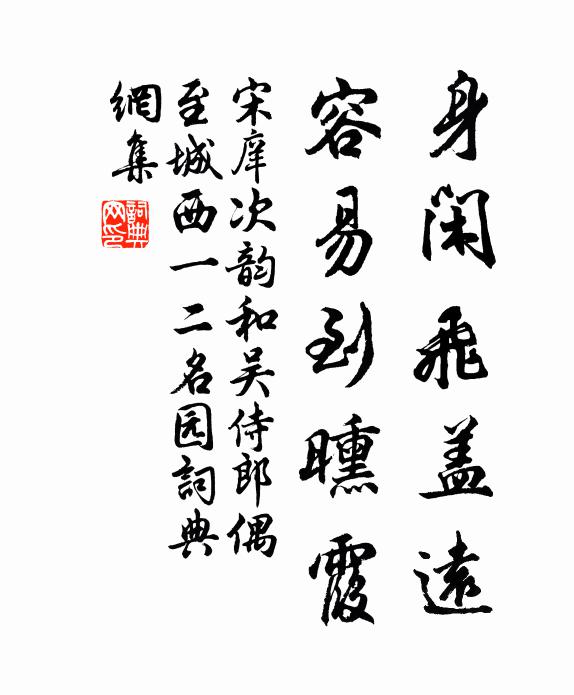 身闲飛盖遠
容易到曛霞
宋庠次韵和吴侍郎偶
至城西一二名园詞典
網集
詞典
网印